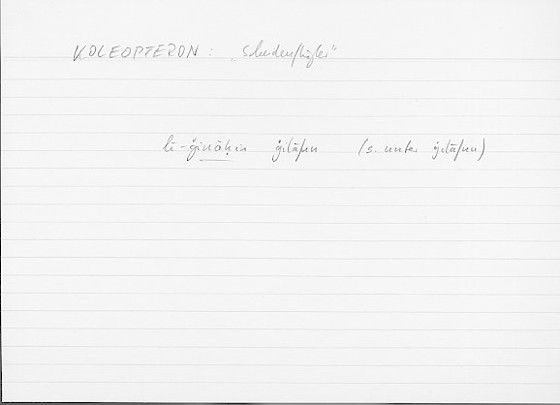 KOLEOPTERON: „Scheidenflügler“
li-ǧināḥin ġilāfun (s. unter ġilāfun)